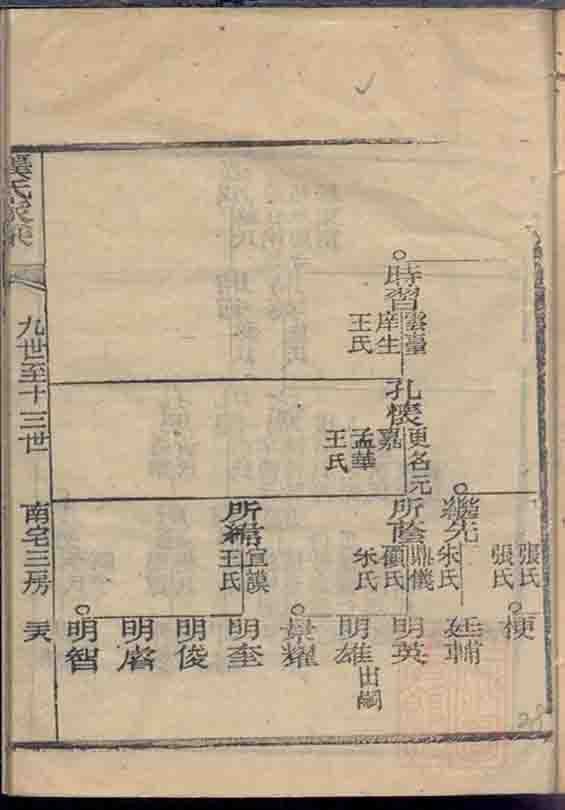 九世至十三世
南宅三房
時習
雲臺
庠生
王氏
孔懷
更名元
嘉
孟華
王氏
繼先
朱氏
張氏
張氏
所蔭
鼎儀
顧氏
朱氏
所繙
宜謨
王氏
梗
廷輔
明英
明雄
出嗣
景耀
明奎
明俊
明睿
明智
28